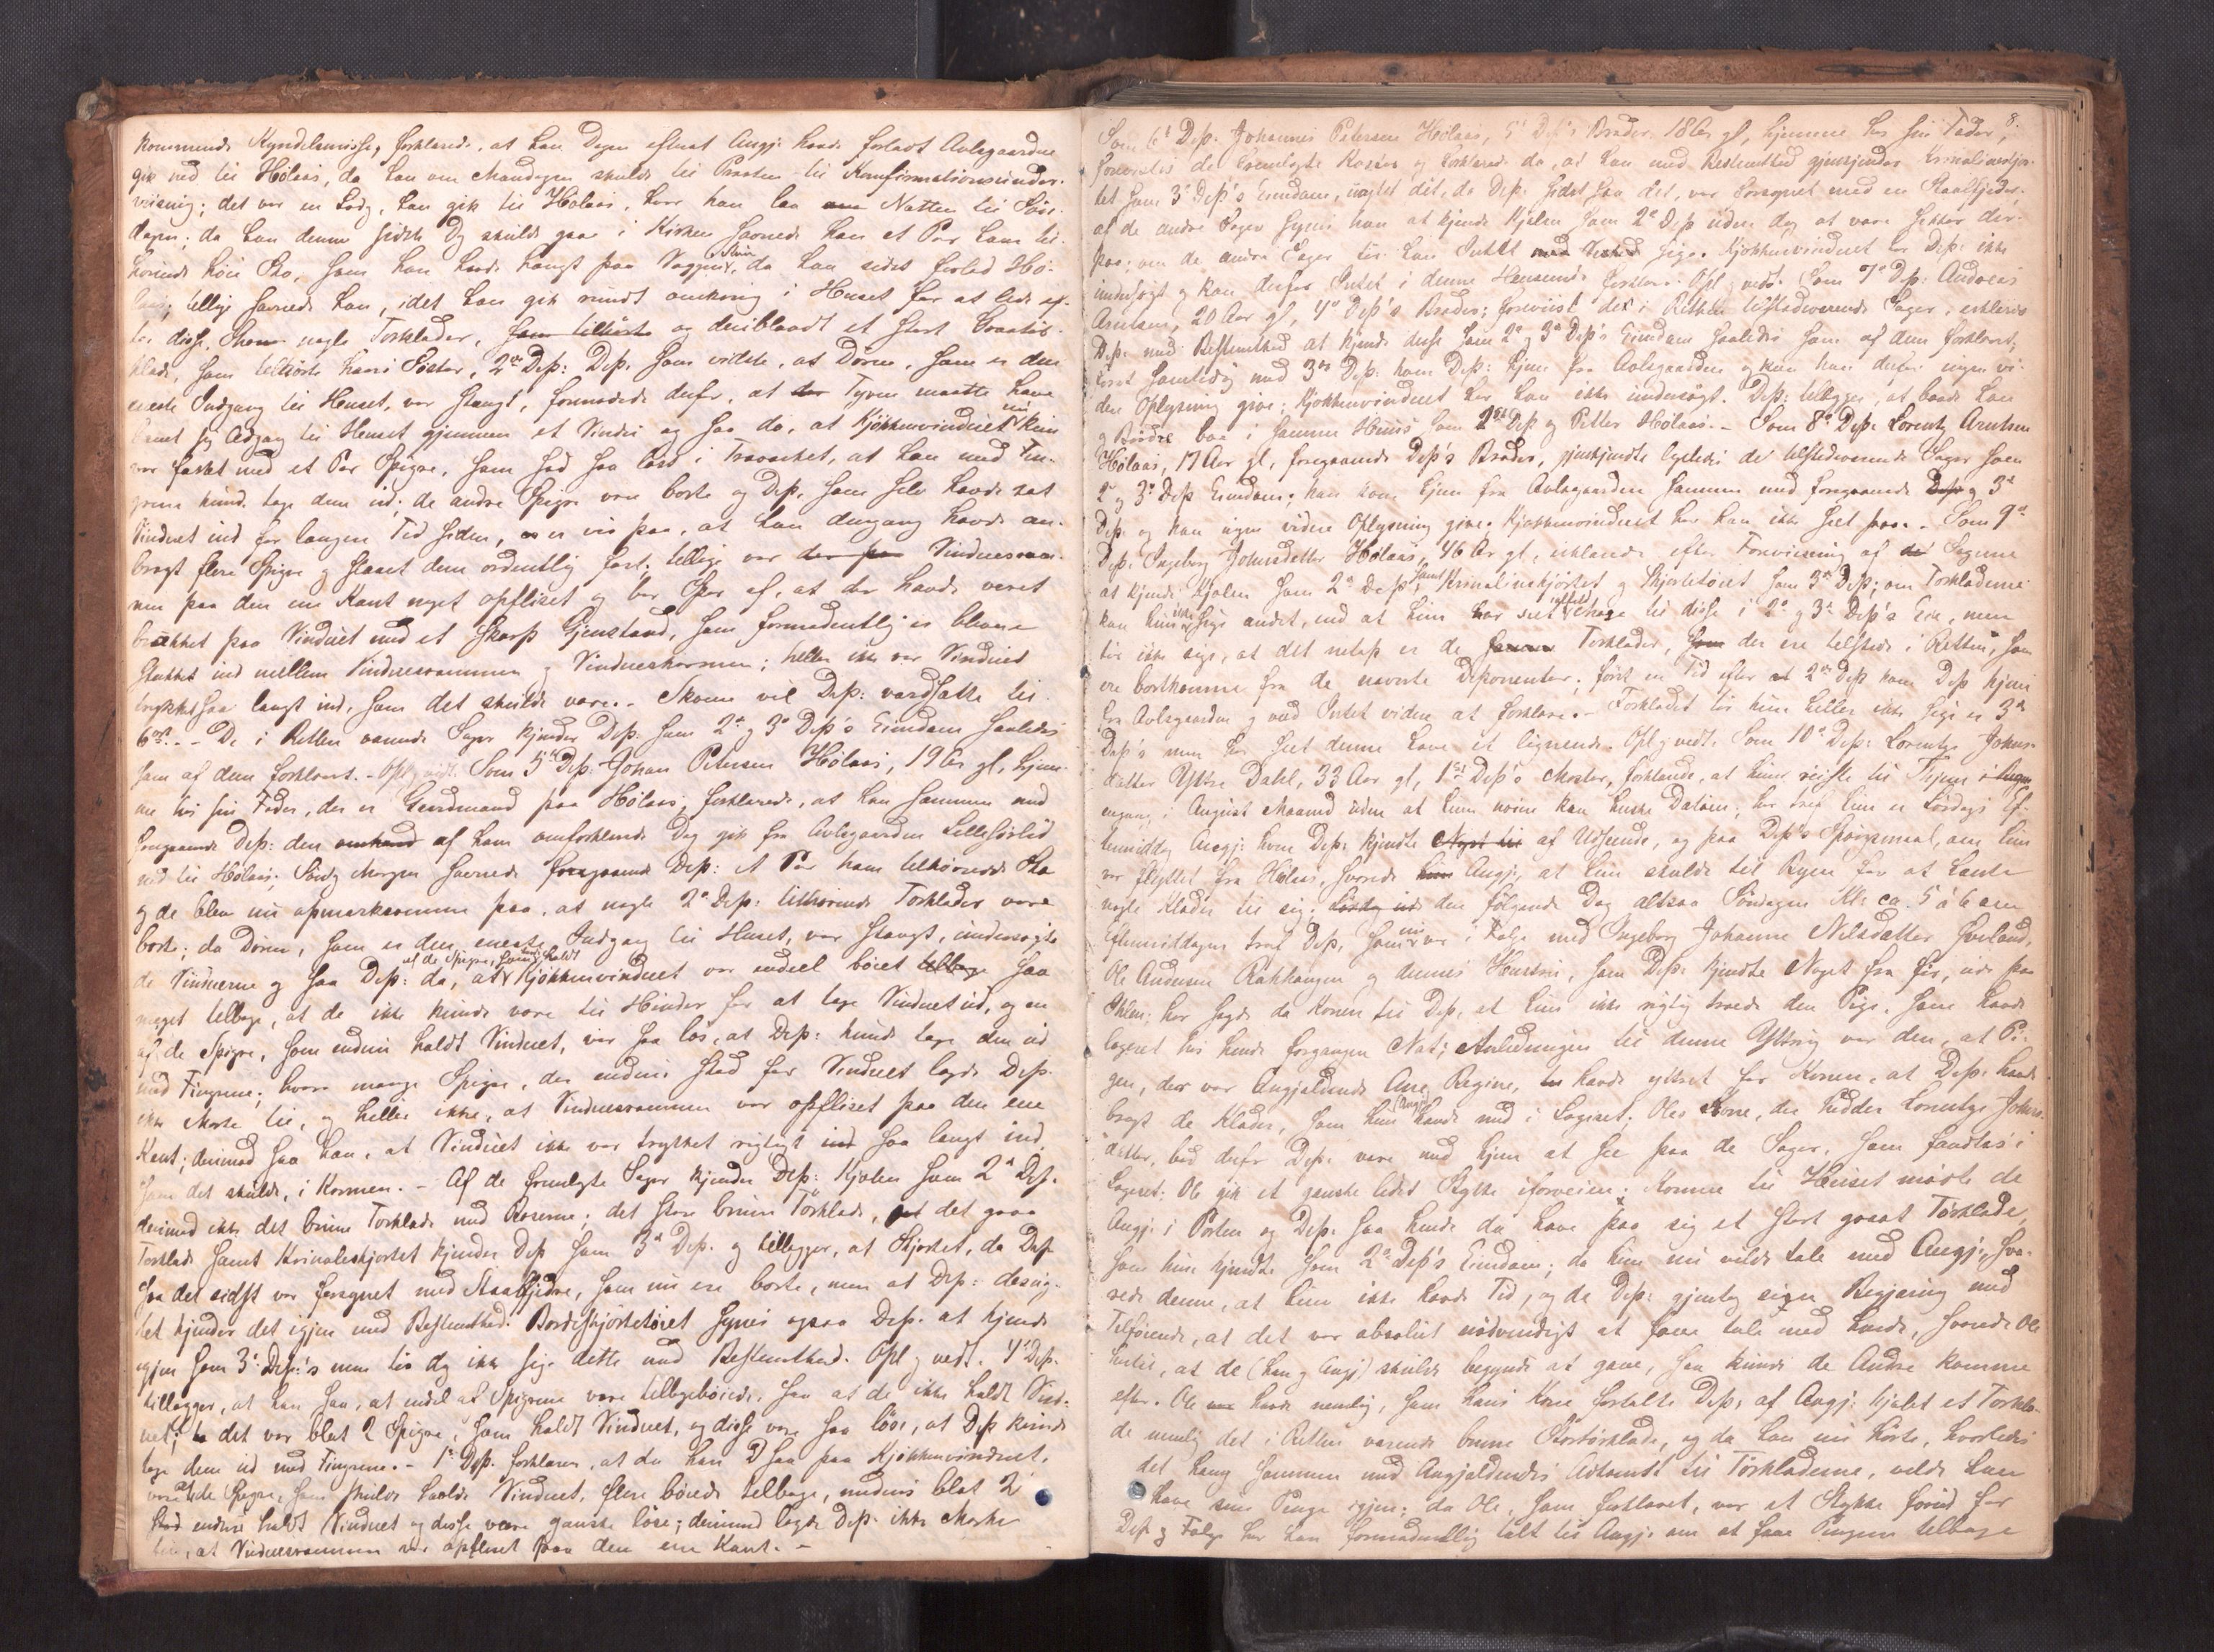 kommende Kyndelsmisse, forklarede, at han Dagen efterat Angj: havde forladt Avlsgaarden
gik ned til Hólaas, da han om Mandagen skulde til Præsten til Konfirmationsunder-
viisning; det var en Lørdag, han gik til Hólaas, hvor han laa Natten til Søn-
dagen; da han denne sidste Dag skulde gaae i Kirken savnede han et Par ham til-
hørende høie Sko, som han havde hængt paa Væggen, da han sidst forlod Hó-
laas; tillige savnede han, idet han gik rundt omkring i Huset for at lede ef-
ter disse Skoene nogle Tørklæder, som tilhørte og deriblandt et stort
klæde, som tilhørte hans Søster, 2den Dep: Dep. som vidste, at Døren, som er den
eneste Indgang til Huset, var stængt, formodede derfor, at Tyven maatte have
banet sig Adgang til Huset gjennem et Vindu og saa da, at Kjøkkenvinduet nu kun
var fæstet med et Par Spigre, som sad saa løst i Træværket, at han med Fin-
grene kunde tage dem ud; de andre Spigre vare borte og Dep. som selv havde sat
Vinduet ind for længere Tid siden, er vis paa, at han dengang havde an-
bragt flere Spigre og slaaet dem ordentlig fast; tillige var Vinduesram-
men paa den ene Kant noget opfliset og bar Spor af, at der havde været
brækket paa Vinduet med et skarp Gjenstand, som formodentlig er bleven
stukket ind mellem Vinduesrammen og Vindueskarmen; heller ikke var Vinduet
trykket saa langt ind, som det skulde være. - Skoene vil Dep: værdsætte til
6 ort. - De i Retten værende Sager kjender Dep: som 2den og 3die Dep's Eiendom saaledes
som af dem forklaret. - Opl. og vedt. Som 5te Dep: Johan Petersen Hólaas, 19 Aar gl., hjem-
me hos sin Fader, der er Gaardmand paa Hólaas, forklarede, at han sammen med
foregaaende Dep: den af ham omforklarede Dag gik fra Avlsgaarden
ned til Hólaas; Søndag Morgen savnede foregaaende Dep: et Par ham tilhørende Sko
og de blev nu opmærksomme paa, at nogle 2den Dep: tilhørende Tørklæder vare
borte; da Døren, som er den eneste Indgang til Huset, var stængt, undersøgte
de Vinduerne og saa Dep: da, at af de Spigre, som holdt Kjøkkenvinduet var endeel bøiet saa
meget tilbage, at de ikke kunde være til Hinder for at tage Vinduet ud, og en
af de Spigre, som endnu holdt Vinduet, var saa løs, at Dep: kunde tage den ud
med Fingrene; hvor mange Spigre, der endnu stod for Vinduet lagde Dep.
ikke Mærke til, og heller ikke, at Vinduesrammen var opfliset paa den ene
Kant; derimod saa han, at Vinduet ikke var trykket rigtigt saa langt ind,
som det skulde, i Karmen. - Af de fremlagte Sager kjender Dep: Kjolen som 2den Dep.
derimod ikke det brune Tørklæde med Roserne; det store brune Tørklæde, det graa
Tørklæde samt Krinolinskjørtet kjender Dep som 3die Dep. og tillægger, at Skjørtet, da Dep
saa det sidst var forsynet med Staalfjedre, som nu ere borte, men at Dep: desuag-
tet kjender det igjen med Bestemthed. Skjortetøiet synes ogsaa Dep. at kjende
igjen som 3die Dep:'s men tør dog ikke sige dette med Bestemthed. Opl. og vedt. 4de Dep.
tillægger, at han saa, at endel af Spigrene vare tilbagebøiede, saa at de ikke holdt Vind-
uet; det var blot 2 Spigre, som holdt Vinduet, og disse vare saa løse, at Dep kunde
tage dem ud med Fingrene. - 1ste Dep. forklarer, at da han saa paa Kjøkkenvinduet,
vare de Spigre, som skulde holde Vinduet, flere bøiede tilbage, medens blot 2
endnu holdt Vinduet og disse vare ganske løse; derimod lagde Dep. ikke Mærke
til, at Vinduesrammen var opfliset paa den ene Kant. -
8.
Som 6te Dep. Johannes Petersen Hólaas, 5te Dep's Broder, 18 Aar gl, hjemme hos sin Fader,
forevistes de fremlagte Koster og forklarede da, at han med Bestemthed gjenkjender Krinolinskjør-
tet som 3die Dep's Eiendom, uagtet det, da Dep. sidst saa det, var forsynet med en Staalfjeder;
af de andre Sager synes han at kjende Kjolen som 2den Dep uden dog at være sikker der-
paa; om de andre Sager tør han Intet sige. Kjøkkenvinduet har Dep: ikke
undersøgt og kan derfor Intet i denne Henseende forklare. Opl. vedt. Som 7de Dep: Andreas
Arntsen, 20 Aar gl, 4de Dep's Broder; foreviist de i Retten tilstedeværende Sager, erklærede
Dep. med Bestemthed at kjende disse som 2den og 3die Dep's Eiendom saaledes som af dem forklaret;
først samtidig med 3die Dep: kom Dep: hjem fra Avlsgaarden og kan han derfor ingen vi-
dere Oplysning give; Kjøkkenvinduet har han ikke undersøgt. Dep: tillægger, at baade han
og Brødre boe i samme Huus som 2den Dep og Petter Hólaas. - Som 8de Dep. Lorentz Arntsen
Hólaas, 17 Aar gl, foregaaende Dep's Broder, gjenkjendte ligeledes de tilstedeværende Sager som
2den og 3die Dep's Eiendom; han kom hjem fra Avlsgaarden sammen med foregaaende og 3die
Dep. og kan ingen videre Oplysning give. Kjøkkenvinduet har han ikke seet paa. - Som 9de
Dep. Ingeborg Johnsdatter Hólaas, 46 Aar gl, erklærede efter Foreviisning af Sagerne
at kjende Kjolen som 2den Dep's samt Krinolinskjørtet og Skjortetøiet som 3die Dep; om Tørklæderne
kan hun ikke sige andet, end at hun har seet Mage til disse i 2den og 3die Dep's Eie, men
tør ikke sige, at det netop er de Tørklæder, der ere tilstede i Retten, som
ere bortkomne fra de nævnte Deponenter; først en Tid efter 2den Dep kom Dep hjem
fra Avlsgaarden og ved Intet videre at forklare. - Forklædet tør hun heller ikke sige er 3die
Dep's men har seet denne have et lignende. Opl. og vedt. Som 10de Dep: Lorentze Johns-
datter Yttre Dahl, 33 Aar gl, 1ste Dep's Moster, forklarede, at hun reiste til
engang i August Maaned uden at hun nøie kan huske Datum; her traf hun en Lørdags Ef-
termiddag Angj: hvem Dep. kjendte af Udseende, og paa Dep's Spørgsmaal, om hun
var flyttet fra Hólaas, svarede Angj:, at hun skulde til Byen for at hente
nogle Klæder til sig; den følgende Dag altsaa Søndagen Kl: ca. 5 à 6 om
Eftermiddagen traf Dep, som nu var i Følge med Ingeborg Johanne Nilsdatter
Ole Andersen og dennes Hustru, som Dep: kjendte Noget fra før, ude paa
Ihlen; her sagde da Konen til Dep, at hun ikke rigtig troede den Pige, som havde
logeret hos hende forgangen Nat; Anledningen til denne Yttring var den, at Pi-
gen, der var Angjældende Ane Regine, havde yttret for Konen, at Dep. havde
bragt de Klæder, som hun (Angj:) havde med i Logiet. Oles Kone, der hedder Lorentze Johns-
datter, bad derfor Dep. være med hjem at see paa de Sager, som fandtes i
Logiet; Ole gik et ganske lidet Stykke iforveien; Komne til Huset mødte de
Angj. i Porten og Dep. saa hende da have paa sig et stort graat Tørklæde,
som hun kjendte som 2den Dep's Eiendom; da hun nu vilde tale med Angj:, sva-
rede denne, at hun ikke havde Tid, og da Dep: gjentog sin Begjæring med
Tilføiende, at det var absolut nødvendigt at faae tale med hende, svarede Ole
hertil, at de (han og Angj) skulde begynde at gaae, saa kunde de Andre komme
efter. Ole havde nemlig, som hans Kone fortalte Dep, af Angj: kjøbt et Tørklæ-
de nemlig det i Retten værende brune Stortørklæde, og da han nu hørte, hvorledes
det hang sammen med Angjældendes Adkomst til Tørklæderne, vilde han
have sine Penge igjen; da Ole, som forklaret, var et Stykke forud for
Dep og Følge har han formodentlig talt til Angj. om at faae Pengene tilbage